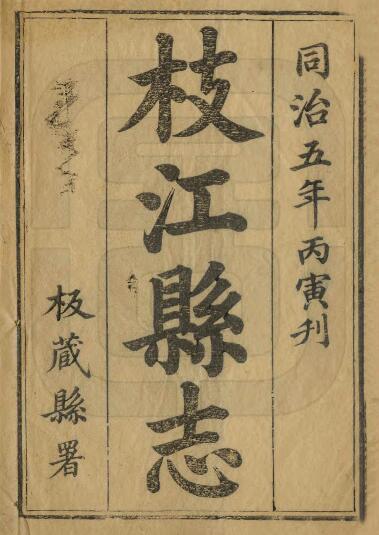 同治五年丙寅刊
枝江縣志
板藏縣署